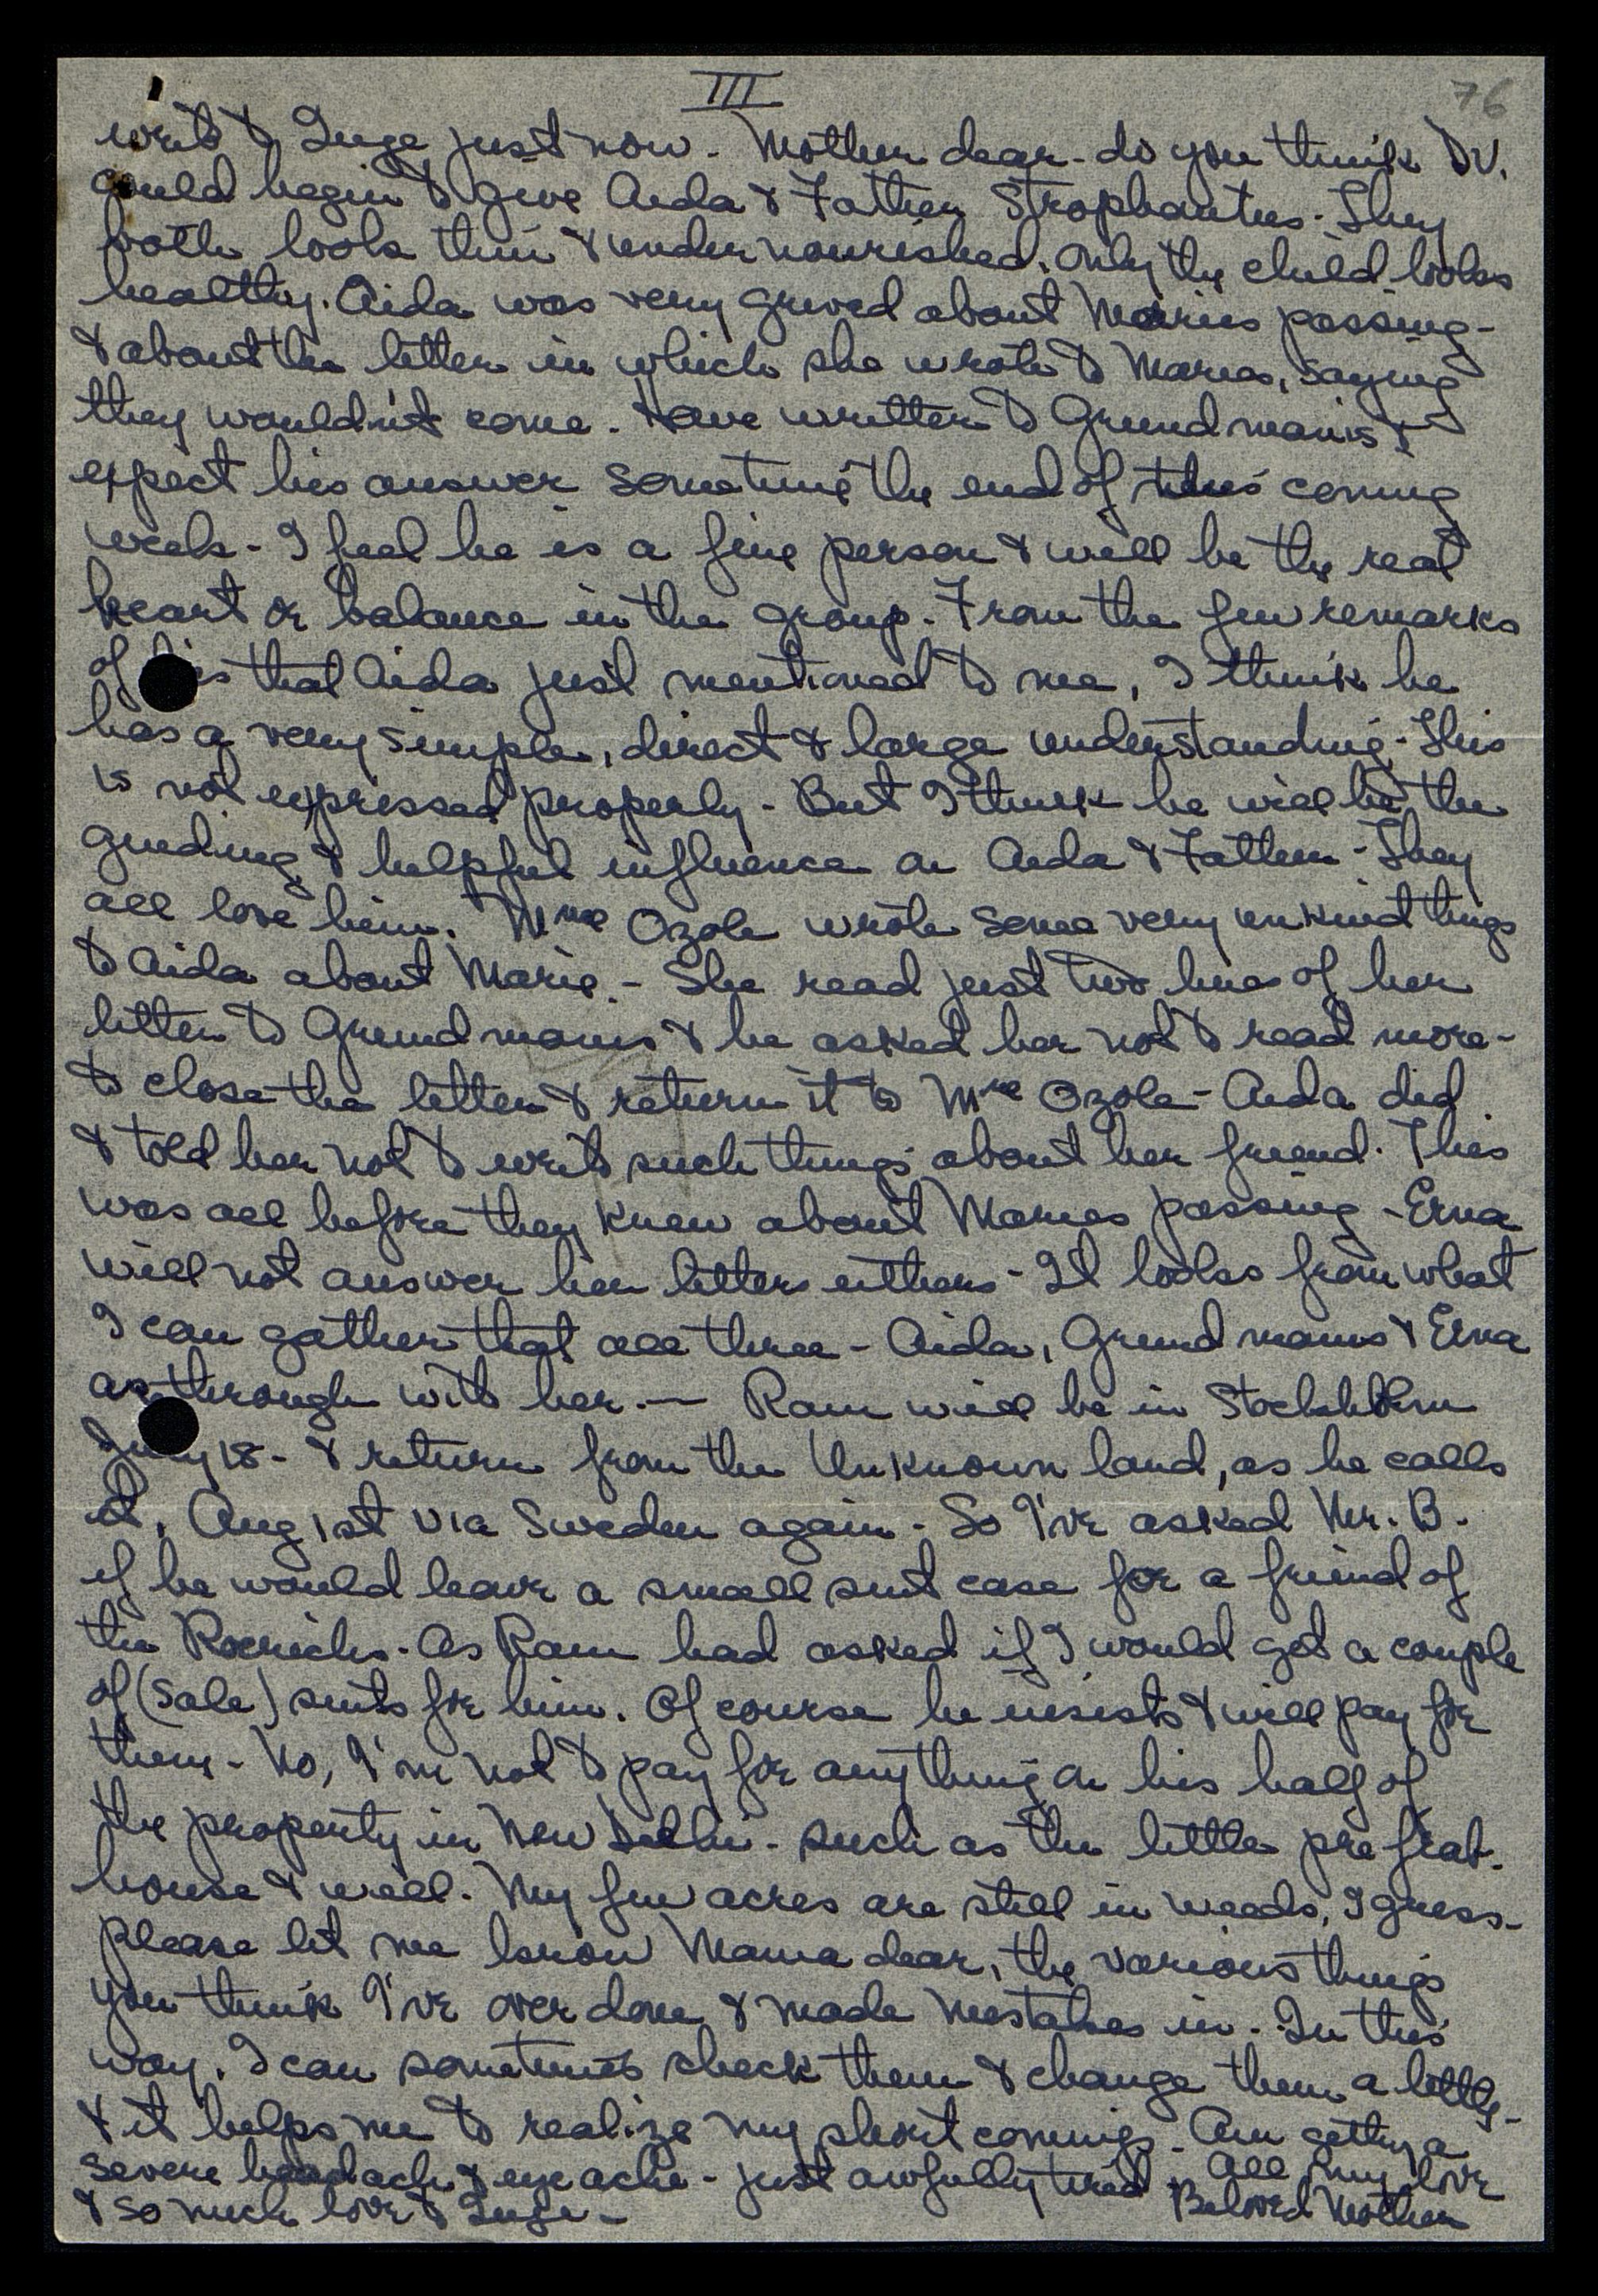 III
76
write to Inge just now. Mother dear - do you think Dr.
could begin to give Aida & Father Strophantus. They
both look thin & undernourished. Only the child looks
healthy. Aida was very grieved about Maries passing -
& about the letter in which she wrote to Marie, saying
they wouldn't come. Have written to Grundmanis &
expect his answer sometime the end of this coming
week - I feel he is a fine person & will be the real
heart or balance in the group. From the few remarks
of his that Aida just mentioned to me, I think he
has a very simple, direct & large understanding. This
is not expressed properly - But I think he will be the
guiding & helpful influence on Aida & Father - They
all love him. Mme Ozole wrote some very unkind things
to Aida about Marie. - She read just two lines of her
letter to Grundmanis & he asked her not to read more -
to close the letter & return it to Mme Ozole - Aida did
& told her not to write such things about her friend. This
was all before they knew about Maries passing - Erna
will not answer her letters either - It looks from what
I can gather that all three - Aida, Grundmanis & Erna
are through with her. — Ram will be in Stockholm
July 18 - & return from the Unknown land, as he calls
it, Aug 1st via Sweden again - So I've asked Mr. B.
if he would leave a small suit case for a friend of
the Roerichs. As Ram had asked if I would get a couple
of (sale) suits for him. Of course he insists & will pay for
them - No, I'm not to pay for anything on his half of
the property in New Delhi - such as the little pre frab.
house & well. My few acres are still in weeds, I guess -
please let me know Mama dear, the various things
you think I've over done & made mistakes in - In this
way, I can sometimes check them & change them a little -
& it helps me to realize my short comings - Am getting a
severe headache & eye ache - just awfully tired. All my love
& so much love to Inge - Beloved Mother